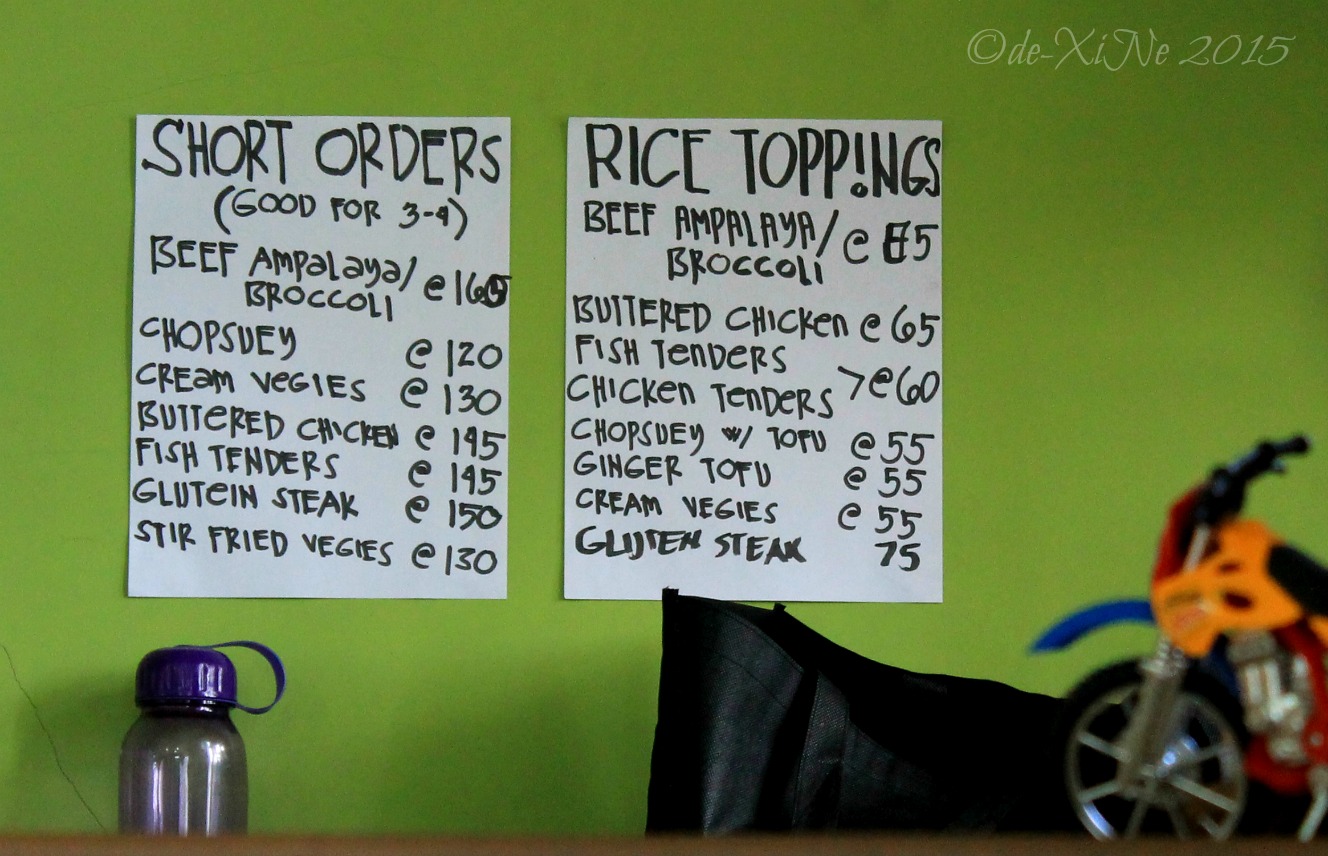 ©de-XiNe 2015
SHORT ORDERS
(GOOD FOR 3-4)
BEEF AMPALAYA/
BROCCOLI @ 165
CHOPSUEY @ 120
CREAM VEGIES @ 130
BUTTERED CHICKEN @ 145
FISH TENDERS @ 145
GLUTEIN STEAK @ 150
STIR FRIED VEGIES @ 130
RICE TOPP!NGS
BEEF AMPALAYA/ @
BROCCOLI
BUTTERED CHICKEN @ 65
FISH TENDERS
CHICKEN TENDERS >@ 60
CHOPSUEY W/ TOFU @ 55
GINGER TOFU @ 55
CREAM VEGIES @ 55
GLUTEN STEAK 75